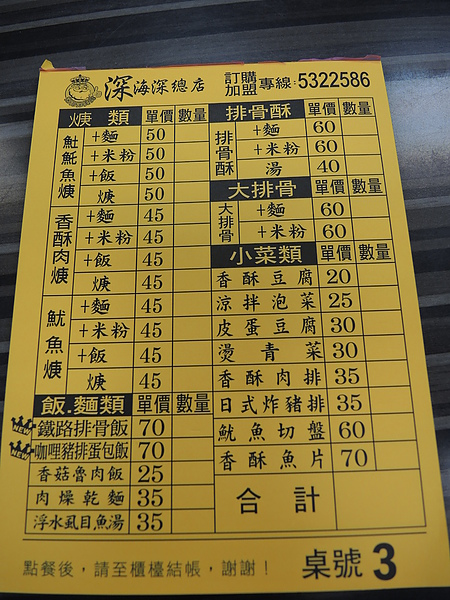 深海深總店 訂購加盟專線:5322586
焿類 單價 數量
魠魠魚焿
+麵 50
+米粉 50
+飯 50
焿 50
香酥肉焿
+麵 45
+米粉 45
+飯 45
焿 45
魷魚焿
+麵 45
+米粉 45
+飯 45
焿 45
飯.麵類 單價 數量
NEW 鐵路排骨飯 70
NEW 咖哩豬排蛋包飯 70
香菇魯肉飯 25
肉燥乾麵 35
浮水虱目魚湯 35
排骨酥 單價 數量
排骨酥
+麵 60
+米粉 60
湯 40
大排骨 單價 數量
大排骨
+麵 60
+米粉 60
小菜類 單價 數量
香酥豆腐 20
涼拌泡菜 25
皮蛋豆腐 30
燙青菜 30
香酥肉排 35
日式炸豬排 35
魷魚切盤 60
香酥魚片 70
合計
點餐後，請至櫃檯結帳，謝謝！ 桌號 3